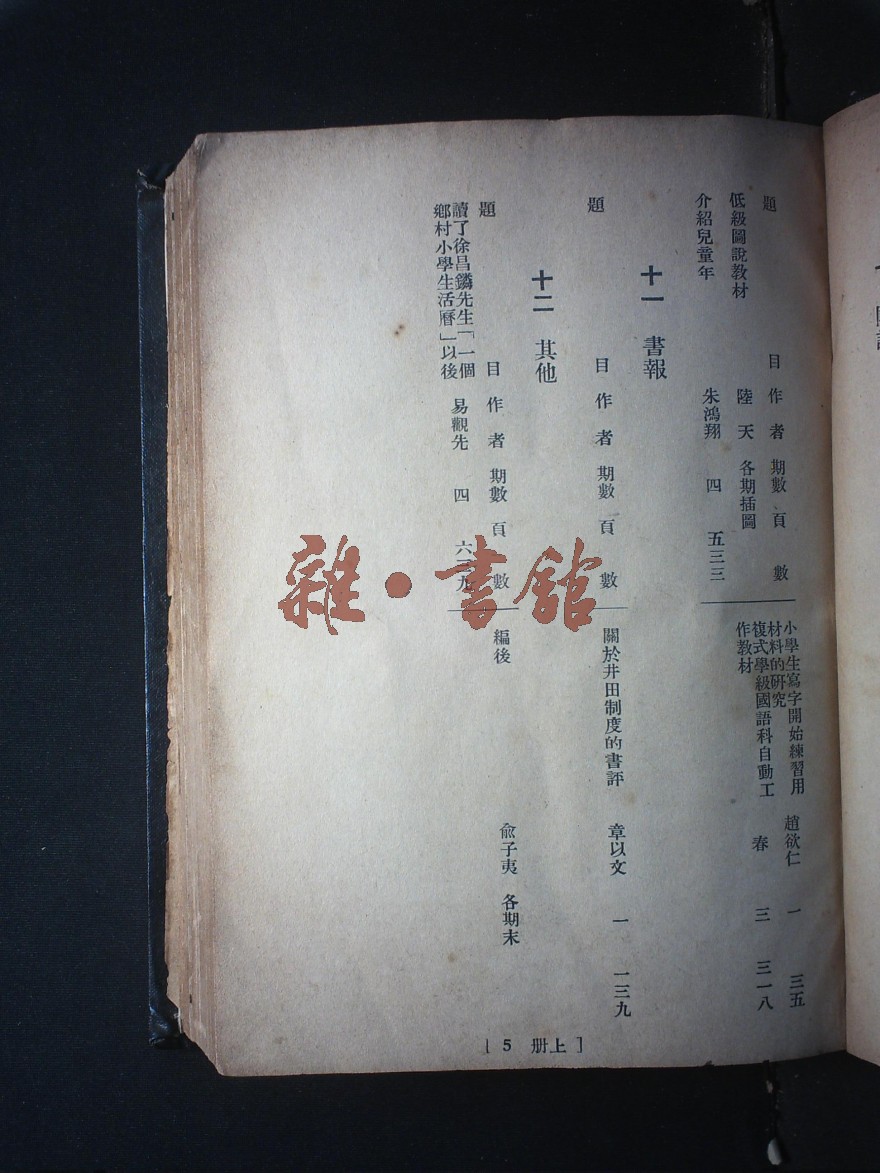 題 目 作者 期數 頁數
低級圖說教材 陸天 各期插圖
介紹兒童年 朱鴻翔 四 五三三
小學生寫字開始練習用
材料的研究 趙欲仁 一 三五
複式學級國語科自動工
作教材 春 三 三一八
十一 書報
題 目 作者 期數 頁數
關於井田制度的書評 章以文 一 一三九
十二 其他
題 目 作者 期數 頁數
讀了徐昌鏻先生「一個
鄉村小學生活曆」以後 易觀先 四
編後 俞子夷 各期末
[ 5 册上 ]
雜·書館